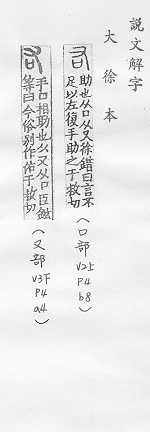 說文解字
大徐本
助也从口从又徐鍇曰言不
足以左復手助之于救切
（口部
V2上
P4
b8）
手口相助也从又从口臣鉉
等曰今俗別作佑于救切
（又部
V3下
P4
a4）